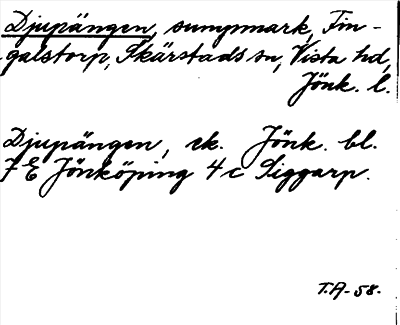 Djupängen, sumpmark, Fin-
galstorp, Skärstads sn, Vista hd,
Jönk. l.
Djupängen, ek. Jönk. bl.
7 E Jönköping 4 c Siggarp.
T.A-58.